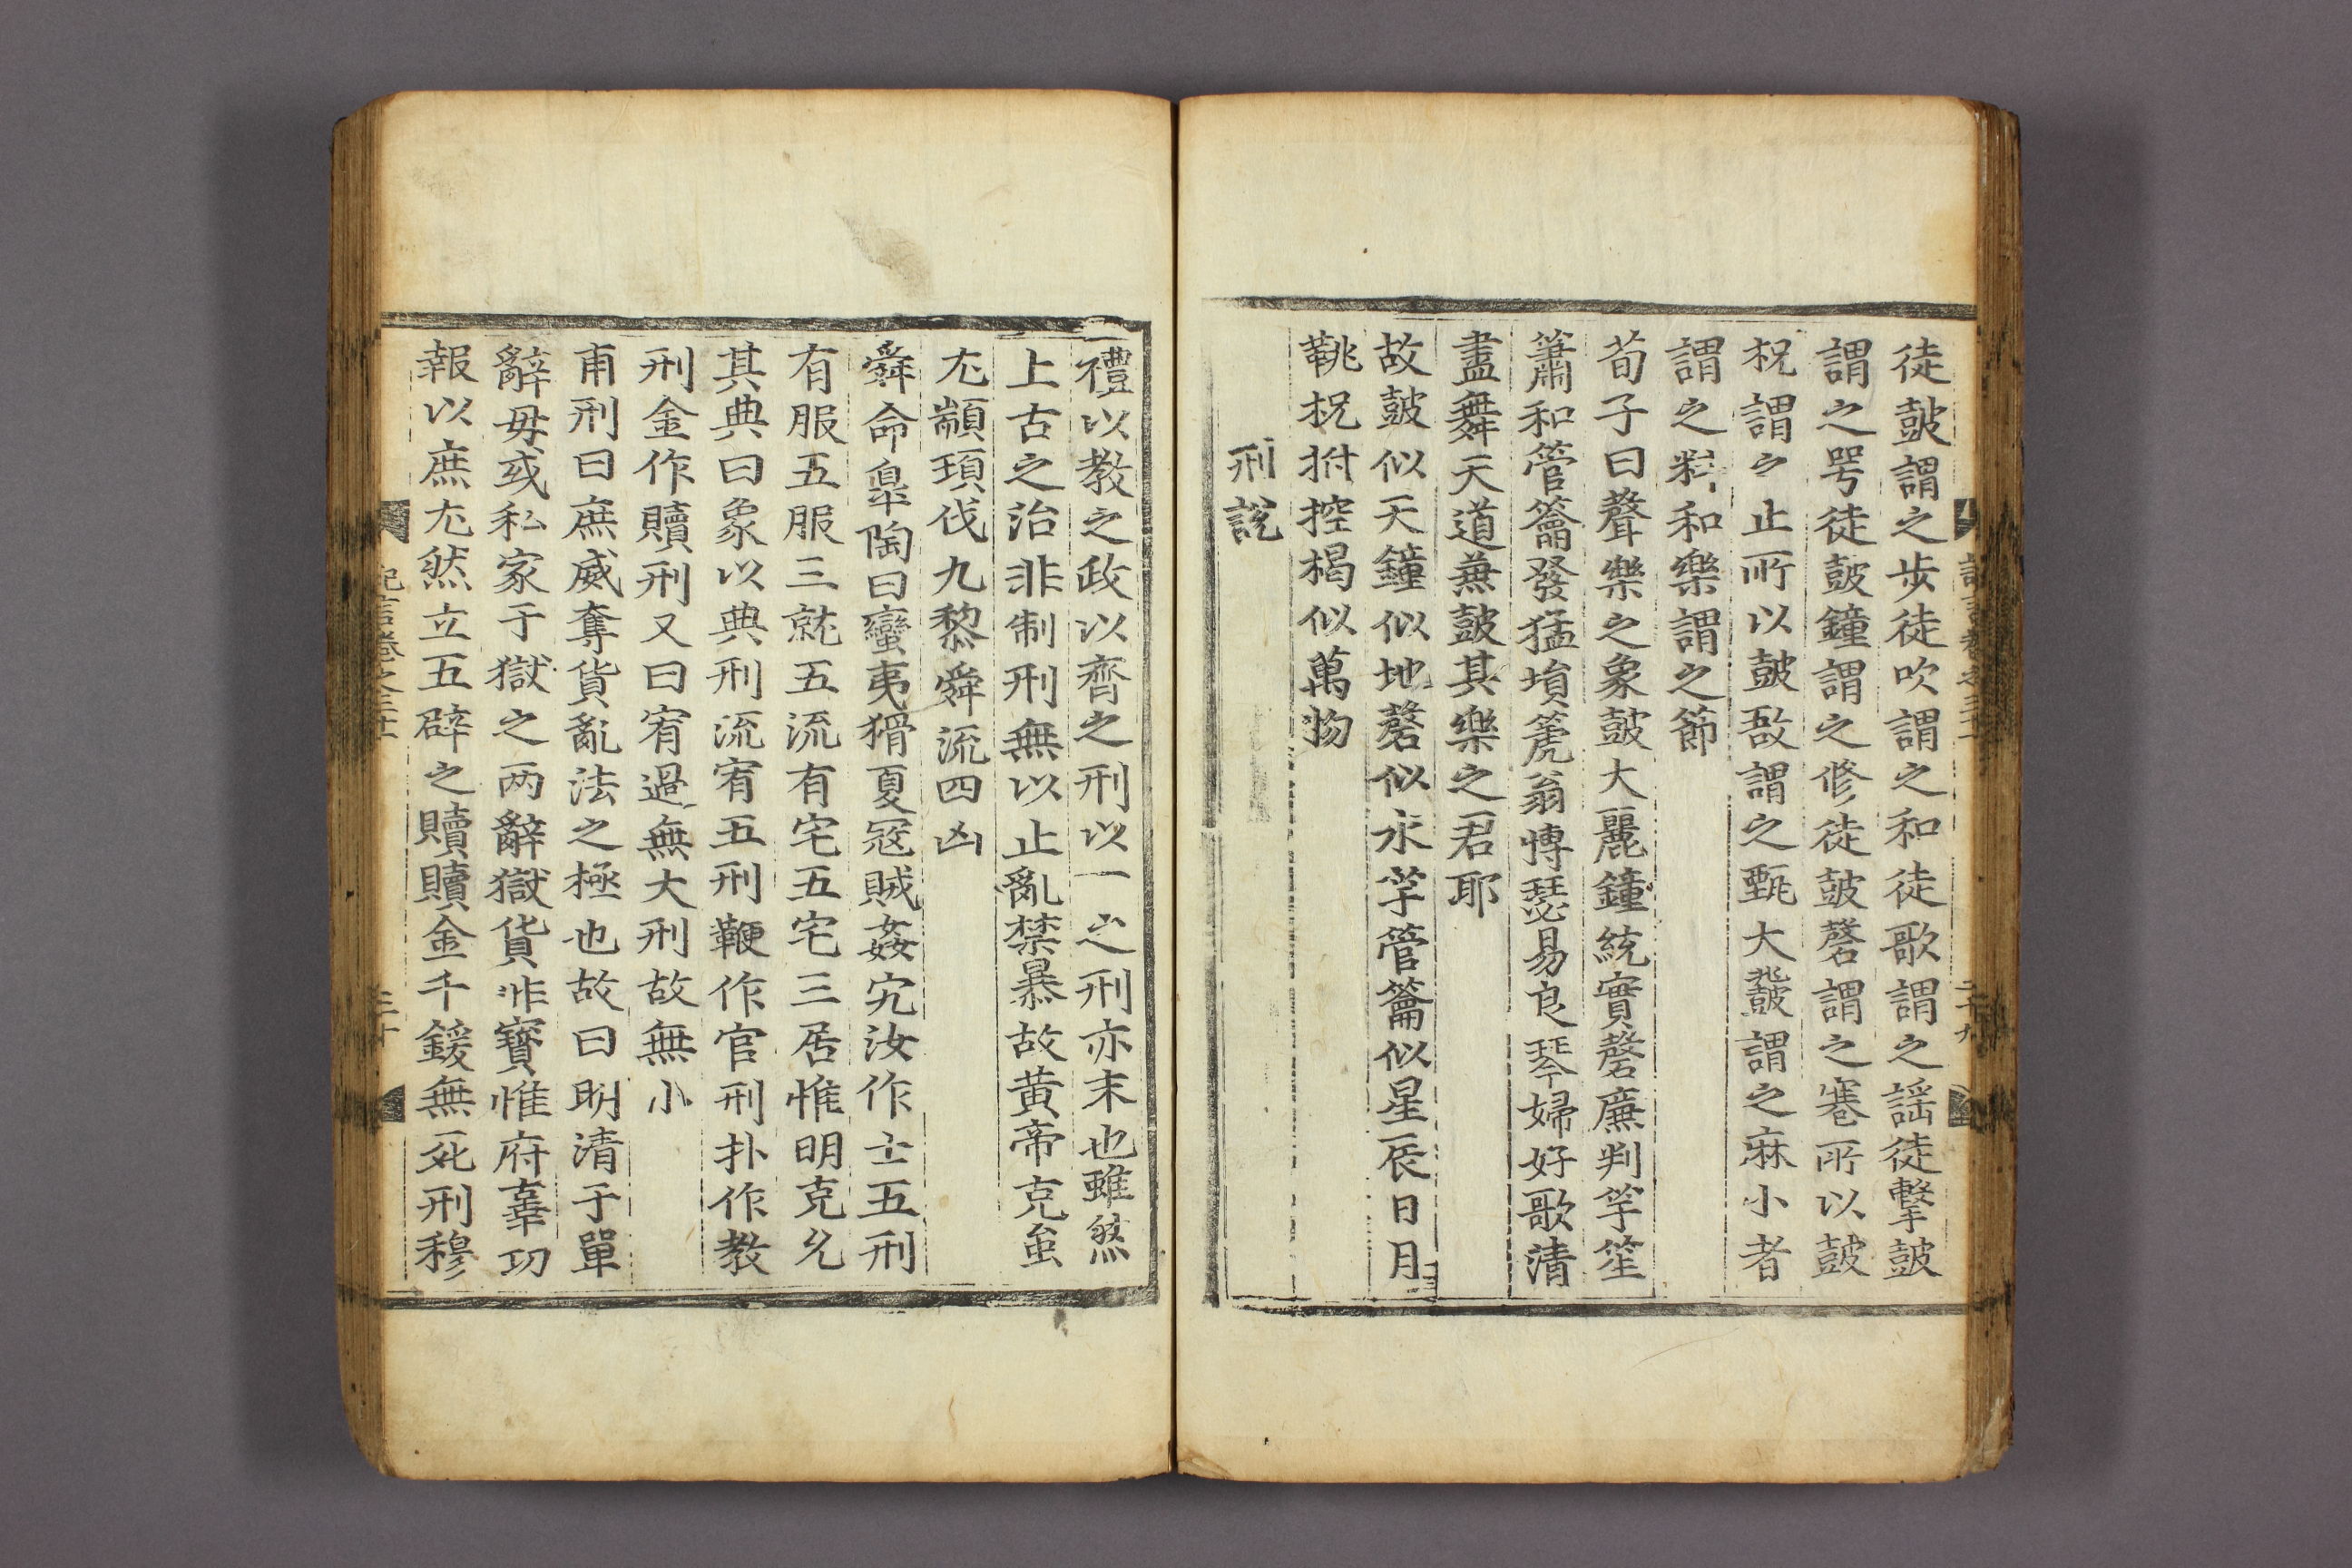 徒鼓謂之步徒吹謂之和徒歌謂之謡徒擊鼓
謂之咢徒鼓鐘謂之修徒鼓磬謂之寋所以鼓
柷謂之止所以鼓敔謂之甄大鼗謂之麻小者
謂之料和樂謂之節
荀子曰聲樂之象鼓大麗鐘統實磬廉判竽笙
簫和管籥發猛塤篪翁博瑟易良琴婦好歌清
盡舞天道兼鼓其樂之君耶
故鼓似天鐘似地磬似水竽管籥似星辰日月
鞉柷拊控楬似萬物
刑說
禮以教之政以齊之刑以一之刑亦末也雖然
上古之治非制刑無以止亂禁暴故黃帝克蚩
尤顓頊伐九黎舜流四凶
舜命皐陶曰蠻夷猾夏冦賊姦宄汝作士五刑
有服五服三就五流有宅五宅三居惟明克允
其典曰象以典刑流宥五刑鞭作官刑扑作教
刑金作贖刑又曰宥過無大刑故無小
甫刑曰庶威奪貨亂法之極也故曰明清于單
辭毋或私家于獄之两辭獄貨非寶惟府辜功
報以庶尤然立五辟之贖贖金千鍰無死刑穆
記言卷之三十
三十
二十九